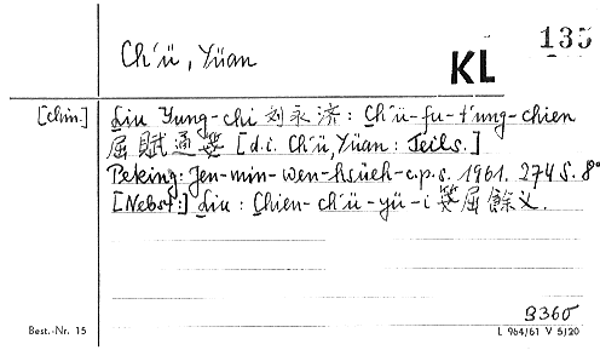 Ch'ü, Yüan
KL
135
[chin.] Liu Yung-chi 刘永济: Ch'ü-fu-t'ung-chien
屈賦通箋 [d.i. Ch'ü, Yüan: Teils.]
Peking: Jen-min-wen-hsüeh-c.p.s. 1961. 274 S. 8°
[Nebst:] Liu: Chien-ch'ü-yü-i 箋屈餘义.
3360
Best.-Nr. 15
L 964/61 V 5/20